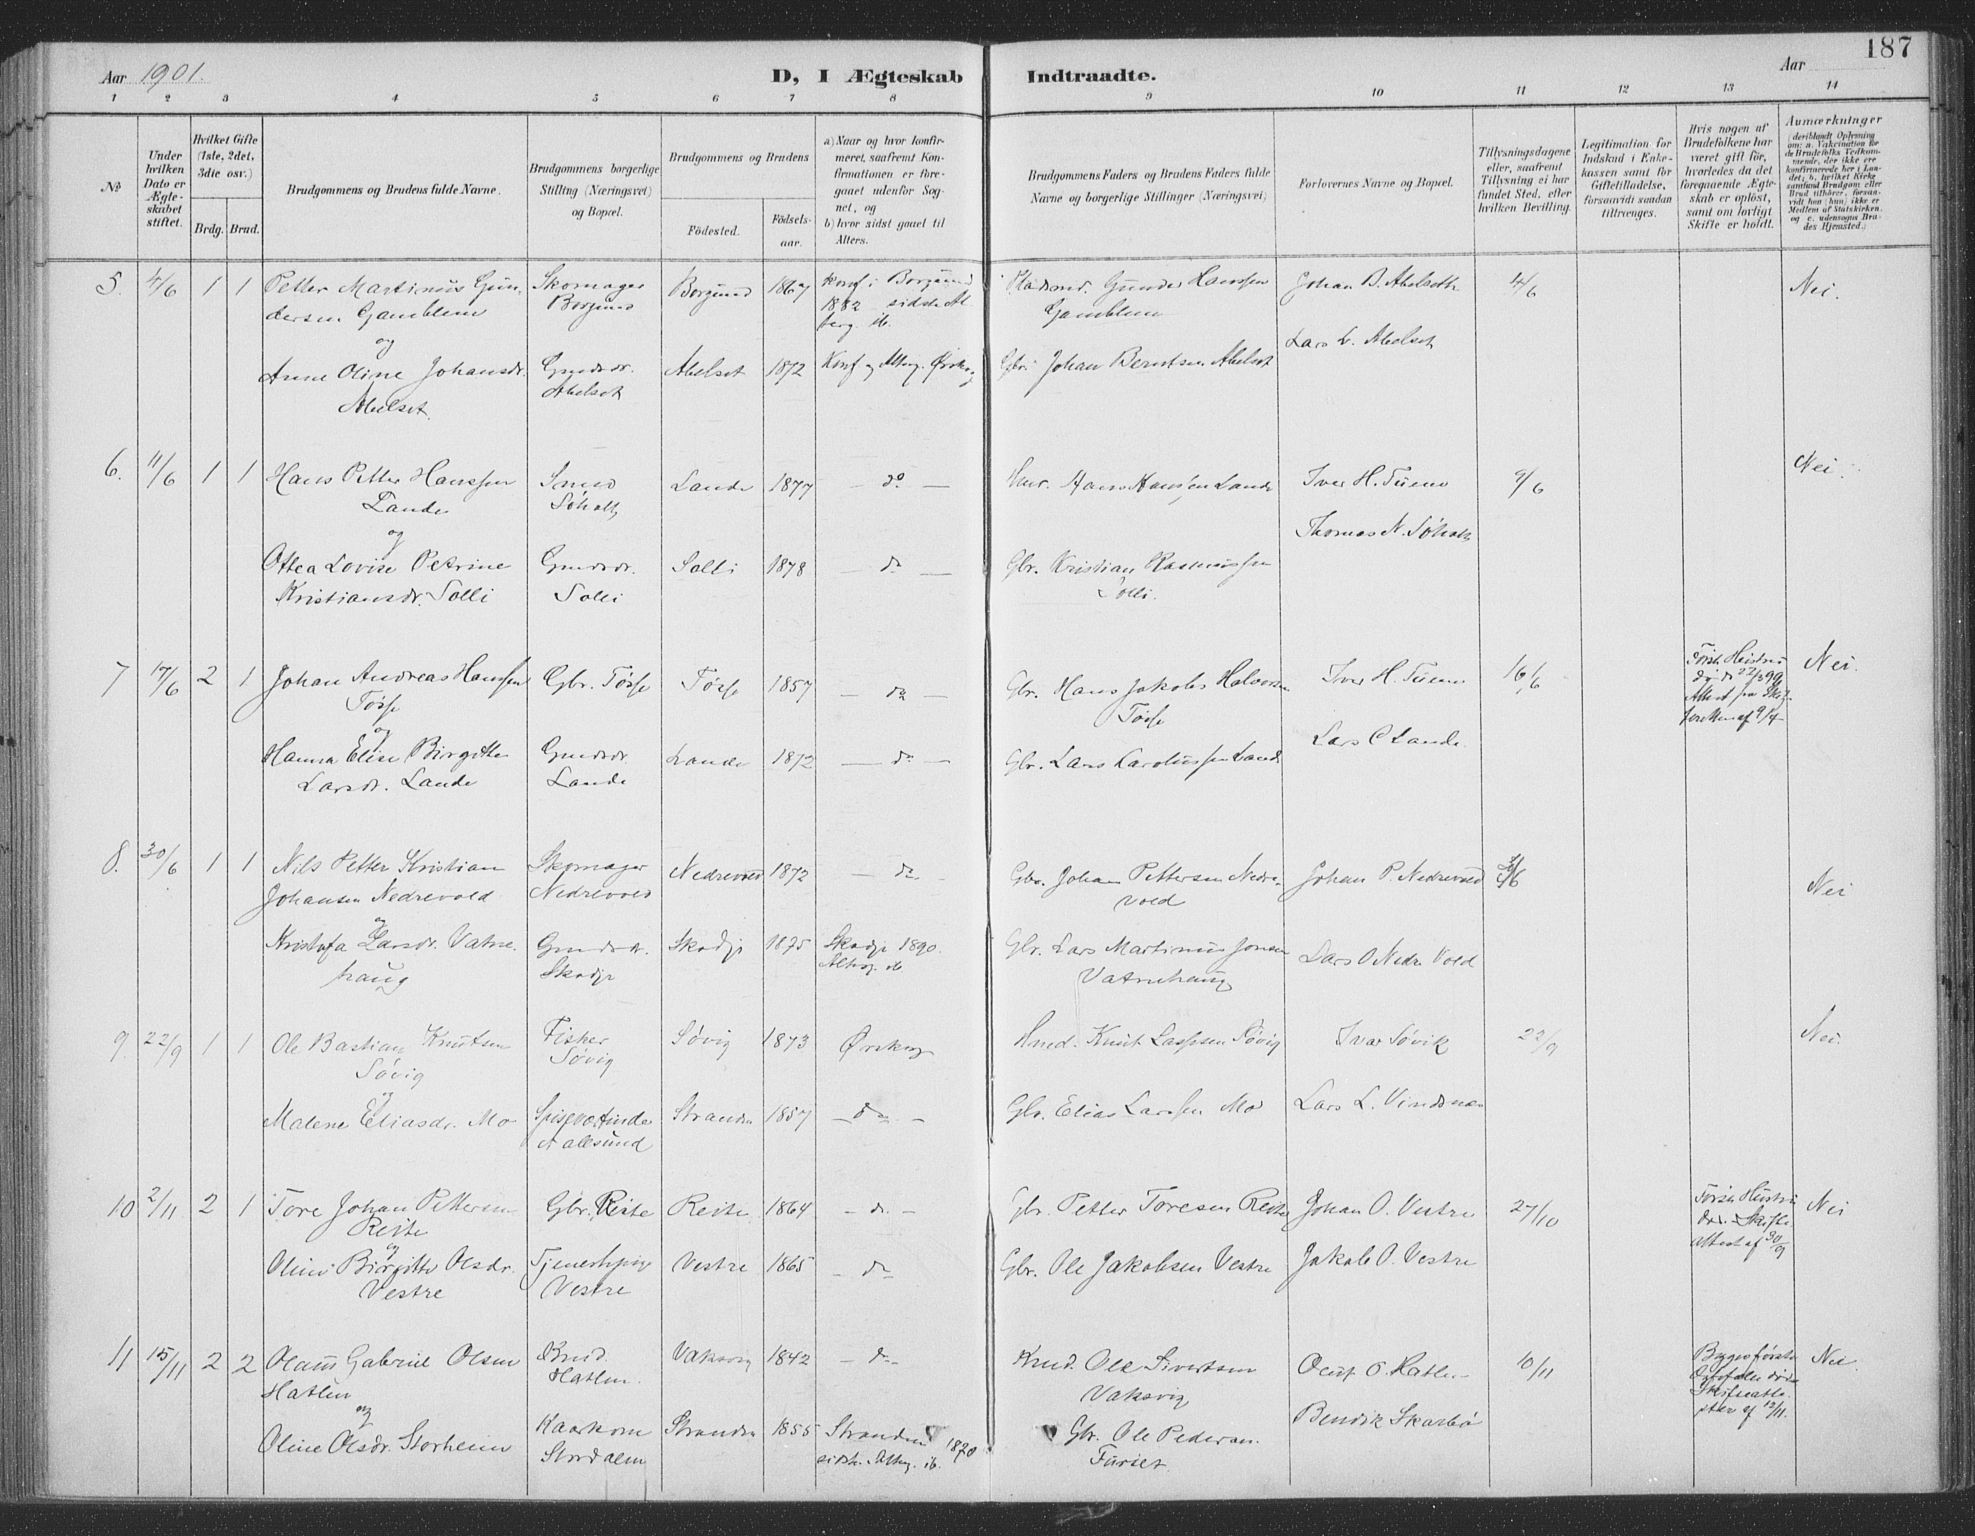 187
Aar 1901.
D, I Ægteskab Indtraadte.
Aar
1 2 3 4 5 6 7 8 9 10 11 12 13 14
№
Under hvilken Dato er Ægteskabet stiftet.
Hvilket Gifte (1ste, 2det, 3die osv.)
Brdg. Brud.
Brudgommens og Brudens fulde Navne.
Brudgommens borgerlige Stilling (Næringsvei) og Bopæl.
Brudgommens og Brudens
Fødested.
Fødselsaar.
a) Naar og hvor konfirmeret, saafremt Konfirmationen er foregaaet udenfor Sognet, og
b) hvor sidst gaaet til Alters.
Brudgommens Faders og Brudens Faders fulde Navne og borgerlige Stillinger (Næringsvei)
Forlovernes Navne og Bopæl.
Tillysningsdagene eller, saafremt Tillysning ei har fundet Sted, efter hvilken Bevilling.
Legitimation for Indskud i Enkekassen samt for Giftetilladelse, forsaavidt saadan tiltrænges.
Hvis nogen af Brudefolkene har været gift før, hvorledes da det foregaaende Ægteskab er opløst, samt om lovligt Skifte er holdt.
Anmærkninger
5. 4/6 1 1 Petter Martinus Gundersen Gamblem
Skomager Borgund
Borgund 1867
Konf. i Borgund 1882 sidste Altberg. ib.
Pladsmd. Gunder Hanssen Gamblem
Johan B. Abelseth
4/6
Nei.
og
Anne Oline Johansdr. Abelset.
Gmdsdr. Abelset
Abelset 1872
Konf og Altbg. Ørskog
Gbr. Johan Berntsen Abelset
Lars L. Abelset
6. 11/6 1 1 Hans Petter Hanssen Lande
Søholt
Lande 1877 – do –
Hans Hansen Lande
Iver H. Tuene
9/6
Nei.
og
Ottea Lovise Petrine Kristiansdr. Solli
Gmdsdr. Solli
Solli 1878 – do –
Gbr. Kristian Rasmussen Solli.
Thomas N. Søholt
7 17/6 2 1 Johan Andreas Hanssen Tøsse
Gbr. Tøsse
Tøsse 1857 – do –
Gbr. Hans Jakob Halvorsen Tøsse
Iver H. Tuene
16/6
Første Hustru død 22/3 99
Nei.
og
Hanna Elise Birgitte Larsdr. Lande
Gmdsdr. Lande
Lande 1872 – do –
Gbr. Lars Carolussen Lande
Lars C Lande.
8. 30/6 1 1 Nils Petter Kristian Johansen Nedrevold
Skomager Nedrevold
Nedrevold 1872 – do –
Gbr. Johan Pettersen Nedrevold
Johan P. Nedrevold
Nei
og
Kristofa Larsdr. Vatnehaug
Gmdsdr. Skodje
Skodje 1875
Skodje 1890. Altbg. ib
Gbr. Lars Martinus Jonsen Vatnehaug
Lars O Nedre Vold
9. 22/9 1 1 Ole Bastian Knutsen Søvig
Fisker Søvig
Søvig 1873
Ørskog
Knut Larssen Søvig
Ivar Søvik
22/9
Nei.
og
Malene Eliasdr. Mo
Spiseværtinde Aalesund
Stranden 1857 – do –
Gbr. Elias Larssen Mo
Lars L. Vindsnæs
10 2/11 2 1 Tore Johan Pettersen Reite
Gbr. Reite
Reite 1864 – do –
Gbr. Petter Toresen Reite
Johan O. Vestre
27/10
Første Hustru død. Skifteattest af 30/9
Nei
og
Oline Birgitte Olsdr. Vestre
Tjenestepige Vestre
Vestre 1865 – do –
Gbr. Ole Jakobsen Vestre
Jakob O. Vestre
11 15/11 2 2 Olaus Gabriel Olsen Hatlen
Hatlen.
Vaksvig 1842 – do –
Ole Sivertsen Vaksvig
O. Hatlen
10/11
Begges første døde Skifteattester af 12/11.
Nei.
og
Oline Olsdr. Storheim
Stordalen
Stranden 1855
Stranden 1870 sidst. Altbg. ib.
Gbr. Ole Pedersen Furset
Bendik Skarbø